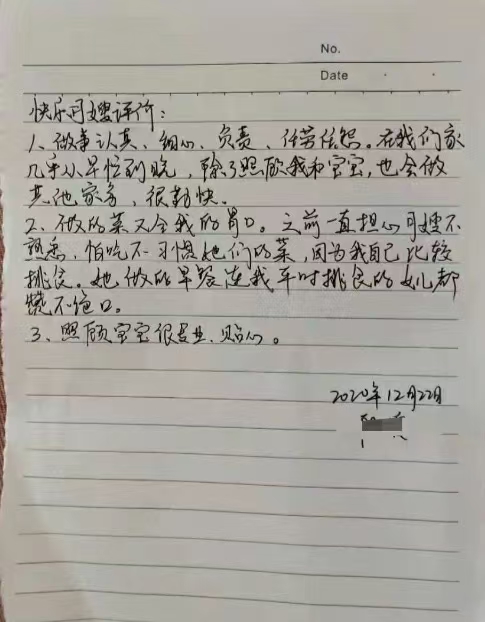 No.
Date
快乐月嫂评价：
1、做事认真、细心、负责、任劳任怨。在我们家
几乎从早忙到晚，除了照顾我和宝宝，也会做
其他家务，很勤快。
2、做的菜又合我的胃口。之前一直担心月嫂不
熟悉，怕吃不习惯她们的菜，因为我自己比较
挑食。她做的早餐连我平时挑食的女儿都
赞不绝口。
3、照顾宝宝很专业、贴心。
2020年12月22日